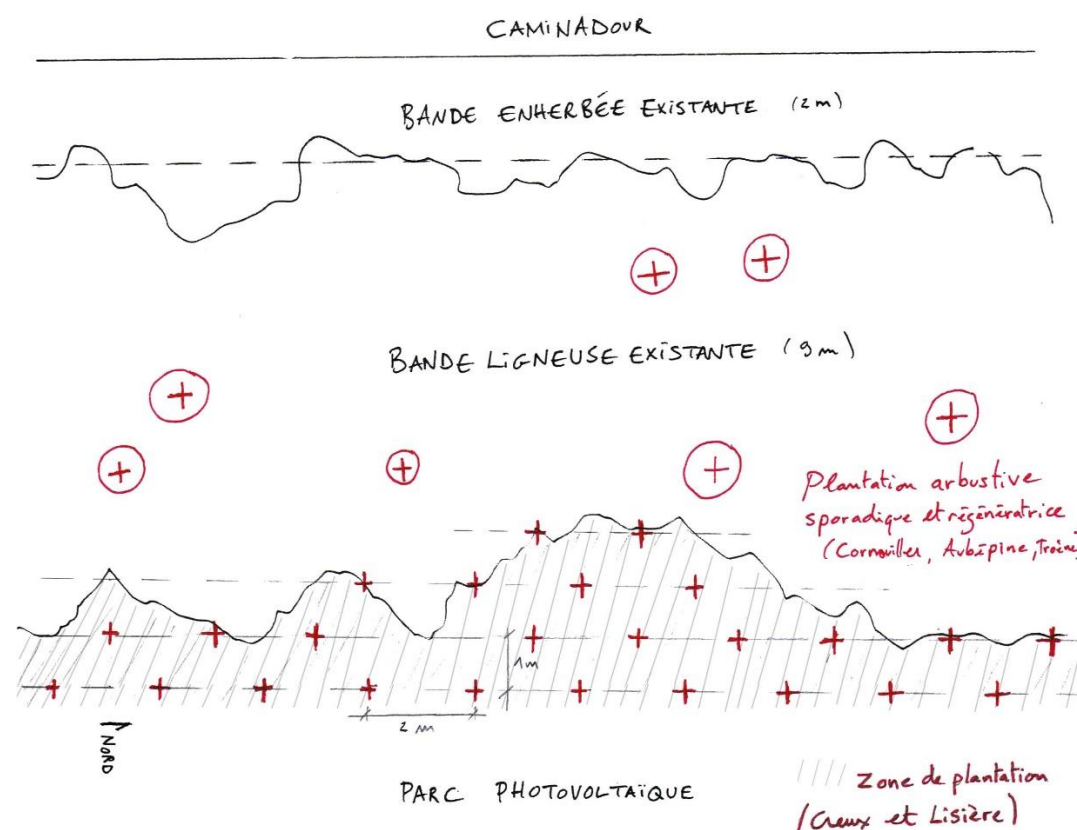 CAMINADOUR
BANDE ENHERBÉE EXISTANTE (2m)
BANDE LIGNEUSE EXISTANTE (9m)
Plantation arbustive
sporadique et régénératrice
(Cornouiller, Aubépine, Troène)
1m
2 m
NORD
PARC PHOTOVOLTAÏQUE
Zone de plantation
(Creux et Lisière)